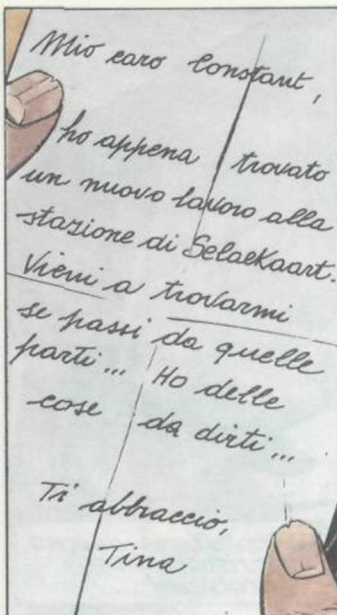 Mio caro Constant,
ho appena trovato
un nuovo lavoro alla
stazione di Selaekaart.
Vieni a trovarmi
se passi da quelle
parti... Ho delle
cose da dirti...
Ti abbraccio,
Tina